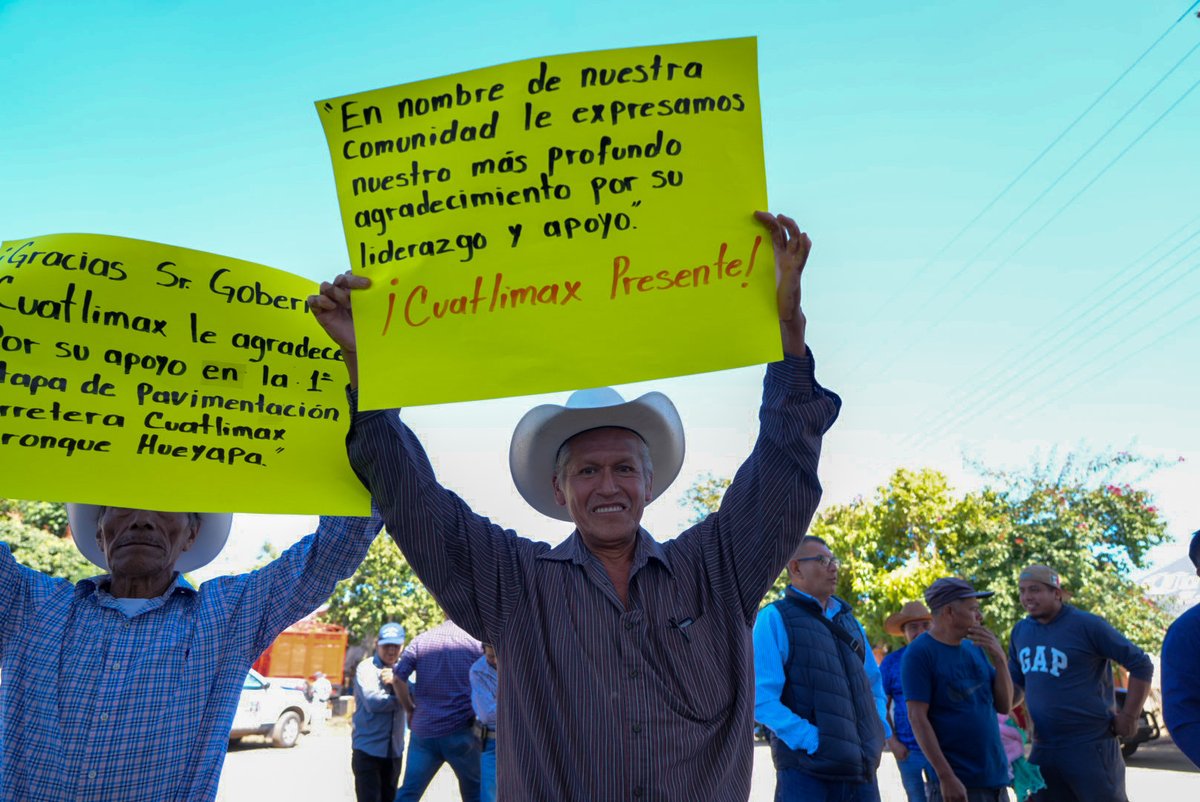 ¡Gracias Sr. Gobern
Cuatlimax le agradece
Por su apoyo en la 1ª
tapa de Pavimentación
rretera Cuatlimax
ronque Hueyapa."
"En nombre de nuestra
comunidad le expresamos
nuestro más profundo
agradecimiento por su
liderazgo y apoyo."
¡Cuatlimax Presente!
GAP